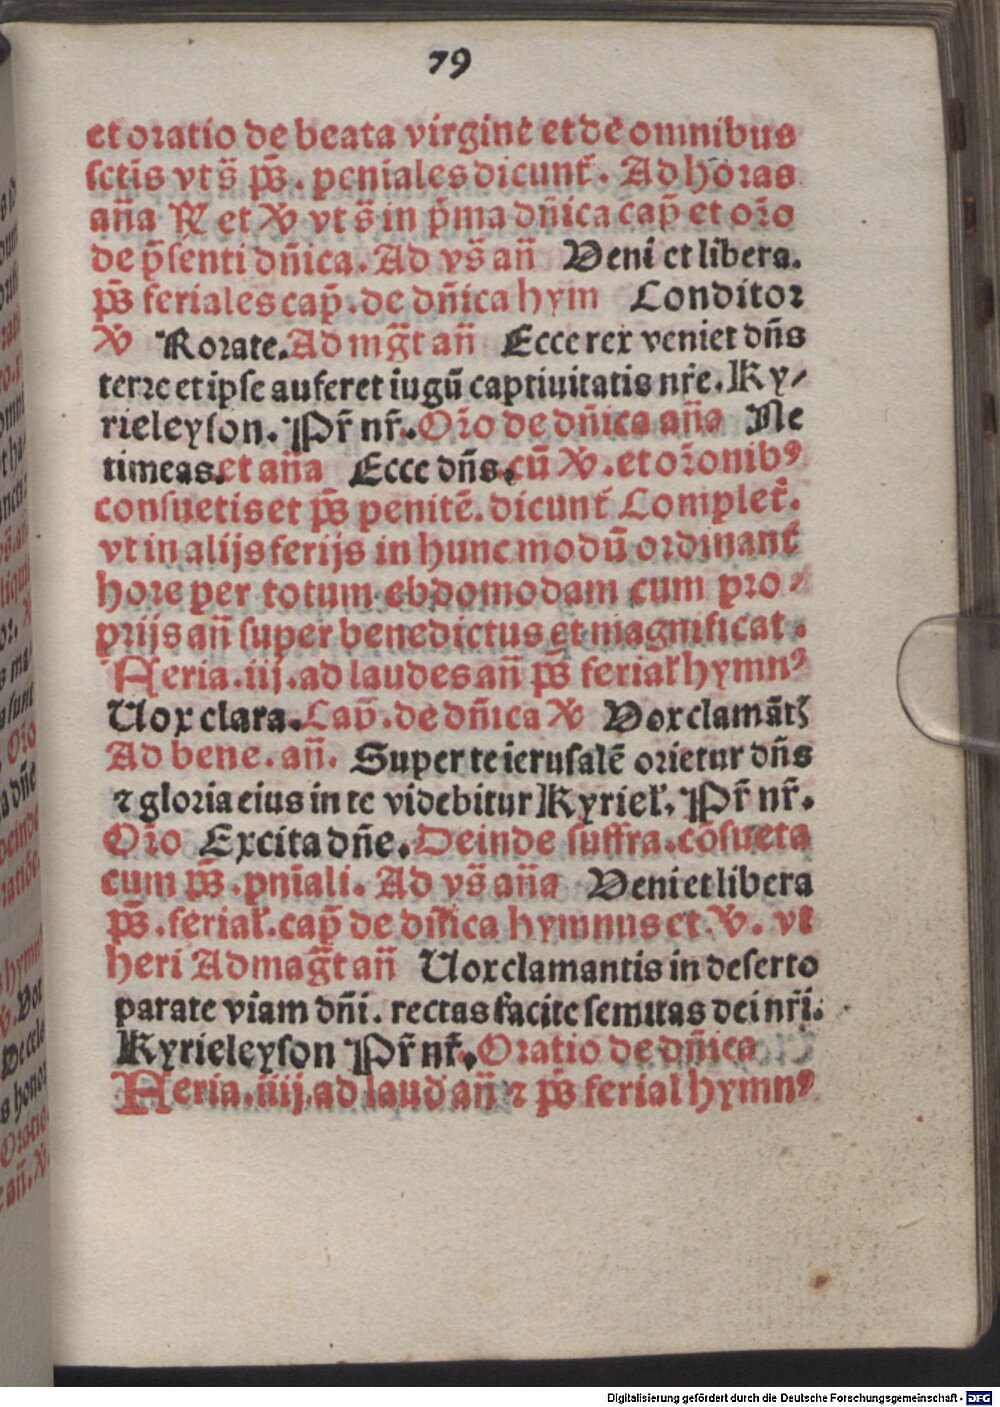 79
et oratio de beata virgine et de omnibus
sctis vt s̄ ps̄. peniales dicunt̃. Ad horas
an̄a R̷ et V̷ vt s̄ in p̄ma dn̄ica cap̄ et or̄o
de p̄senti dn̄ica. Ad vs̄ an̄ Veni et libera.
ps̄ feriales cap̄. de dn̄ica hym Conditor
V̷ Rorate. Ad mg̃t an̄ Ecce rex veniet dn̄s
terre et ipse auferet iugū captiuitatis nr̄e. Ky⸗
rieleyson. Pr̄ nr̄. Or̄o de dn̄ica an̄a Ne
timeas. et an̄a Ecce dn̄s. cū V̷. et or̄onibꝰ
consuetis et ps̄ penitē. dicunt̃ Complet̃.
vt in alijs ferijs in hunc modū ordinant̃
hore per totum ebdomodam cum pro⸗
prijs an̄ super benedictus et magnificat.
Feria. iij. ad laudes an̄ ps̄ ferial̄ hymnꝰ
Uox clara. Cap̄. de dn̄ica V̷ Vox clamāt̃
Ad bene. an̄. Super te ierusalē orietur dn̄s
⁊ gloria eius in te videbitur Kyriel̄. Pr̄ nr̄.
Or̄o Excita dn̄e. Deinde suffra. cōsueta
cum ps̄. pn̄iali. Ad vs̄ an̄a Veni et libera
ps̄. ferial̄. cap̄ de dn̄ica hymnus et. V̷. vt
heri Ad mag̃t an̄ Uox clamantis in deserto
parate viam dn̄i. rectas facite semitas dei nr̄i.
Kyrieleyson Pr̄ nr̄. Oratio de dn̄ica
Feria. iiij. ad laud an̄ ⁊ ps̄ ferial hymnꝰ
Digitalisierung gefördert durch die Deutsche Forschungsgemeinschaft - DFG